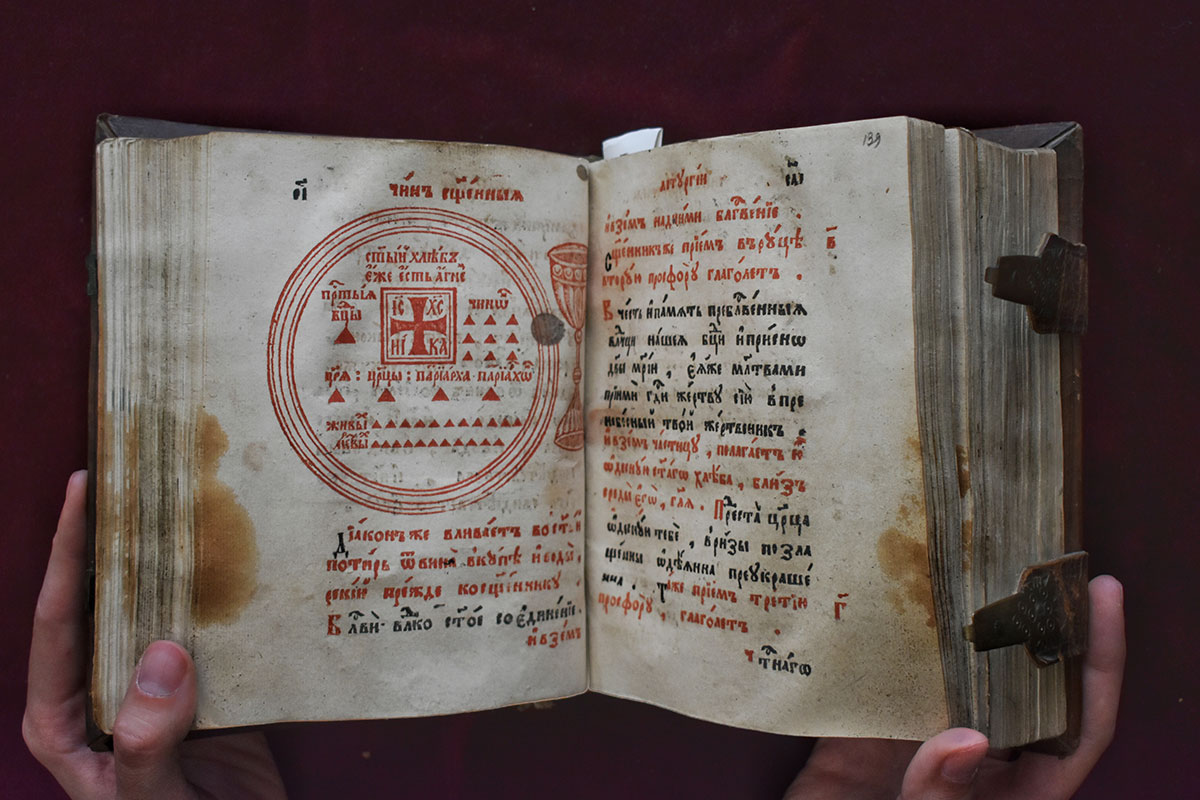 чи́нъ сщ҃е́нныѧ
ст҃ы́й хлѣ́бъ
є҆́же є҆́сть а҆́гнецъ
прⷭ҇ты́ѧ
бц҃ы
І҆С ХС
НИ КА
чинѡ́въ
цр҃ѧ̀ : цр҃цы : патрїа́рха патрїа́хѡⷡ
живы́ⷯ
ме́ртвыⷯ
Дїа́конъ же влива́етъ во ст҃ы́й
поти́рь ѿ вина̀ вкꙋ́пѣ и҆ воды̀,
реки́й пре́жде ко сщ҃е́нникꙋ .
Блⷭ҇ви влⷣко ст҃о́е соедине́нїе .
и҆ взе́мъ
литꙋргі́и
139
и҆ взе́мъ над ни́ми блгⷭ҇ве́нїе .
Сщ҃е́нникъ же прїе́мъ в рꙋ́цѣ
в҃
вторꙋ́ю просфорꙋ̀ глаго́летъ .
В че́сть и҆ па́мѧть пребл҃гослове́нныѧ
влⷣчцы на́шеѧ бц҃ы и҆ приснѡ
дв҃ы мр҃і́и , є҆ѧ́же мл҃твами
прїимѝ гдⷭ҇и же́ртвꙋ сїю̀ в пре
нбⷭ҇ный тво́й же́ртвенникъ .
и҆ взе́мъ части́цꙋ , полага́етъ ю҆̀
ѡ҆деснꙋ́ю ст҃а́гѡ хлѣ́ба , бли́зъ
среды̀ є҆гѡ̀ , гл҃ѧ . Предста̀ цр҃ца
ѡ҆деснꙋ́ю тебѐ , в ри́зы позла
ще́нны ѡ҆дѣ́ѧна преꙋкраше
на . Та́же прїе́мъ тре́тїю
г҃
просфорꙋ̀ , глаго́летъ .
чⷭ҇тна́гѡ